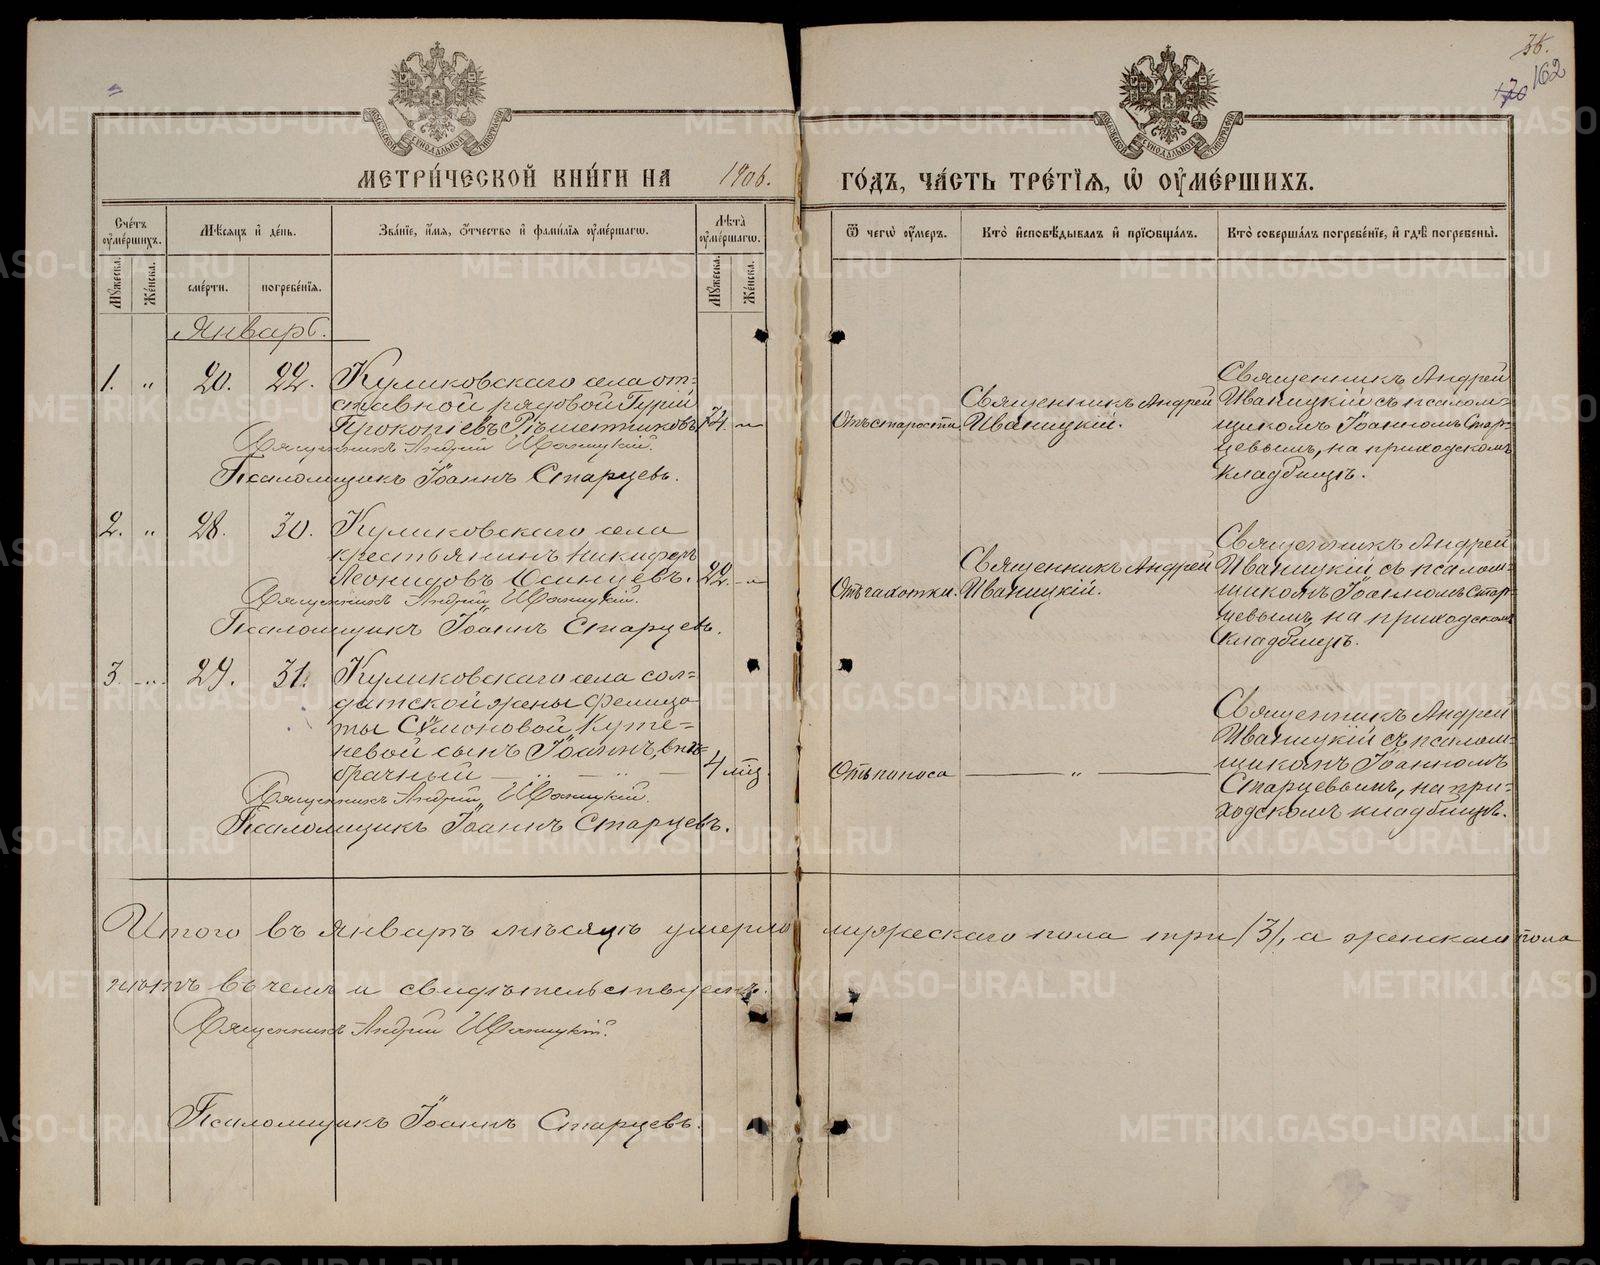 35.
170 162
МЕТРИ́ЧЕСКОЙ КНИ́ГИ НА 1906. ГО́ДЪ, ЧА́СТЬ ТРЕ́ТІѦ, Ѡ ОУМЕ́РШИХЪ.
Сче́тъ оуме́ршихъ.
Мѣсяцъ и́ де́нь.
Зва́ніе, и́мѧ, о́тчество и́ фами́лїѧ оуме́ршагѡ.
Лѣта̀ оуме́ршагѡ.
Ѿ чегѡ̀ оу́меръ.
Кто̀ и́сповѣ́дывалъ и́ прїѡбща́лъ.
Кто̀ соверша́лъ погребе́нїе, и́ гдѣ̀ погребены̀.
Мꙋ́жеска.
Же́нска.
сме́рти.
погребе́нїѧ.
Мꙋ́жеска.
Же́нска.
Январь.
1. " 20. 22. Куликовскаго села от-
ставной рядовой Гурій
Прокопіевъ Рѣшетниковъ 74. –"–
Священникъ Андрей Иваницкій.
Псаломщикъ Іоаннъ Старцевъ.
Отъ старости
Священникъ Андрей
Иваницкій.
Священникъ Андрей
Иваницкій съ псалом-
щикомъ Іоанномъ Стар-
цевымъ, на приходскомъ
кладбищѣ.
2. " 28. 30. Куликовскаго села
крестьянинъ Никифоръ
Леонидовъ Осинцевъ. 22. –"–
Священникъ Андрей Иваницкій.
Псаломщикъ Іоаннъ Старцевъ.
Отъ чахотки.
Священникъ Андрей
Иваницкій.
Священникъ Андрей
Иваницкій съ псалом-
щикомъ Іоанномъ Стар-
цевымъ, на приходскомъ
кладбищѣ.
3 –"– 29. 31. Куликовскаго села сол-
датской жены Фелица-
ты Сѵмоновой Куте-
невой сынъ Іоаннъ, внѣ-
брачный — " — " — 4 мѣс.
Священникъ Андрей Иваницкій.
Псаломщикъ Іоаннъ Старцевъ.
Отъ поноса
— " —
Священникъ Андрей
Иваницкій съ псалом-
щикомъ Іоанномъ
Старцевымъ, на при-
ходскомъ кладбищѣ.
Итого въ январѣ мѣсяцѣ умерло мужескаго пола три /3/, а женскаго пола
нѣтъ въ чемъ и свидѣтельствуемъ.
Священникъ Андрей Иваницкій.
Псаломщикъ Іоаннъ Старцевъ.
METRIKI.GASO-URAL.RU